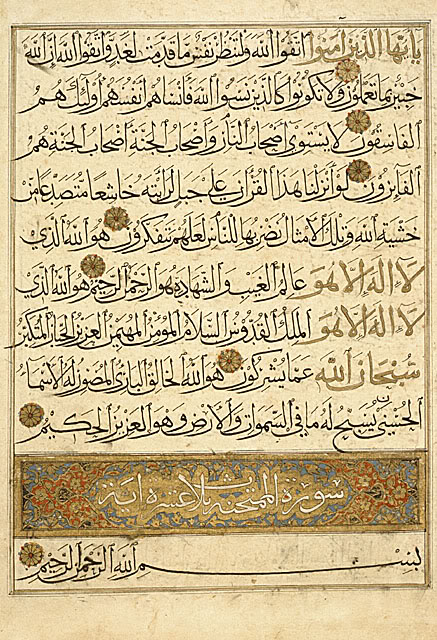 يا أيها الذين آمنوا اتقوا الله ولتنظر نفس ما قدمت لغد واتقوا الله إن الله
خبير بما تعملون ولا تكونوا كالذين نسوا الله فأنساهم أنفسهم أولئك هم
الفاسقون لا يستوي أصحاب النار وأصحاب الجنة أصحاب الجنة هم
الفائزون لو أنزلنا هذا القرآن على جبل لرأيته خاشعا متصدعا من
خشية الله وتلك الأمثال نضربها للناس لعلهم يتفكرون هو الله الذي
لا إله إلا هو عالم الغيب والشهادة هو الرحمن الرحيم هو الله الذي
لا إله إلا هو الملك القدوس السلام المؤمن المهيمن العزيز الجبار المتكبر
سبحان الله عما يشركون هو الله الخالق البارئ المصور له الأسماء
الحسنى يسبح له ما في السموات والأرض وهو العزيز الحكيم
سورة الممتحنة ثلاث عشرة آية
بسم الله الرحمن الرحيم